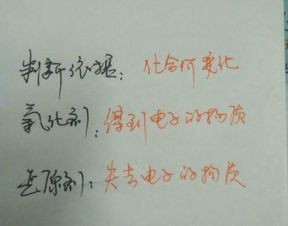 判断依据：化合价变化
氧化剂：得到电子的物质
还原剂：失去电子的物质